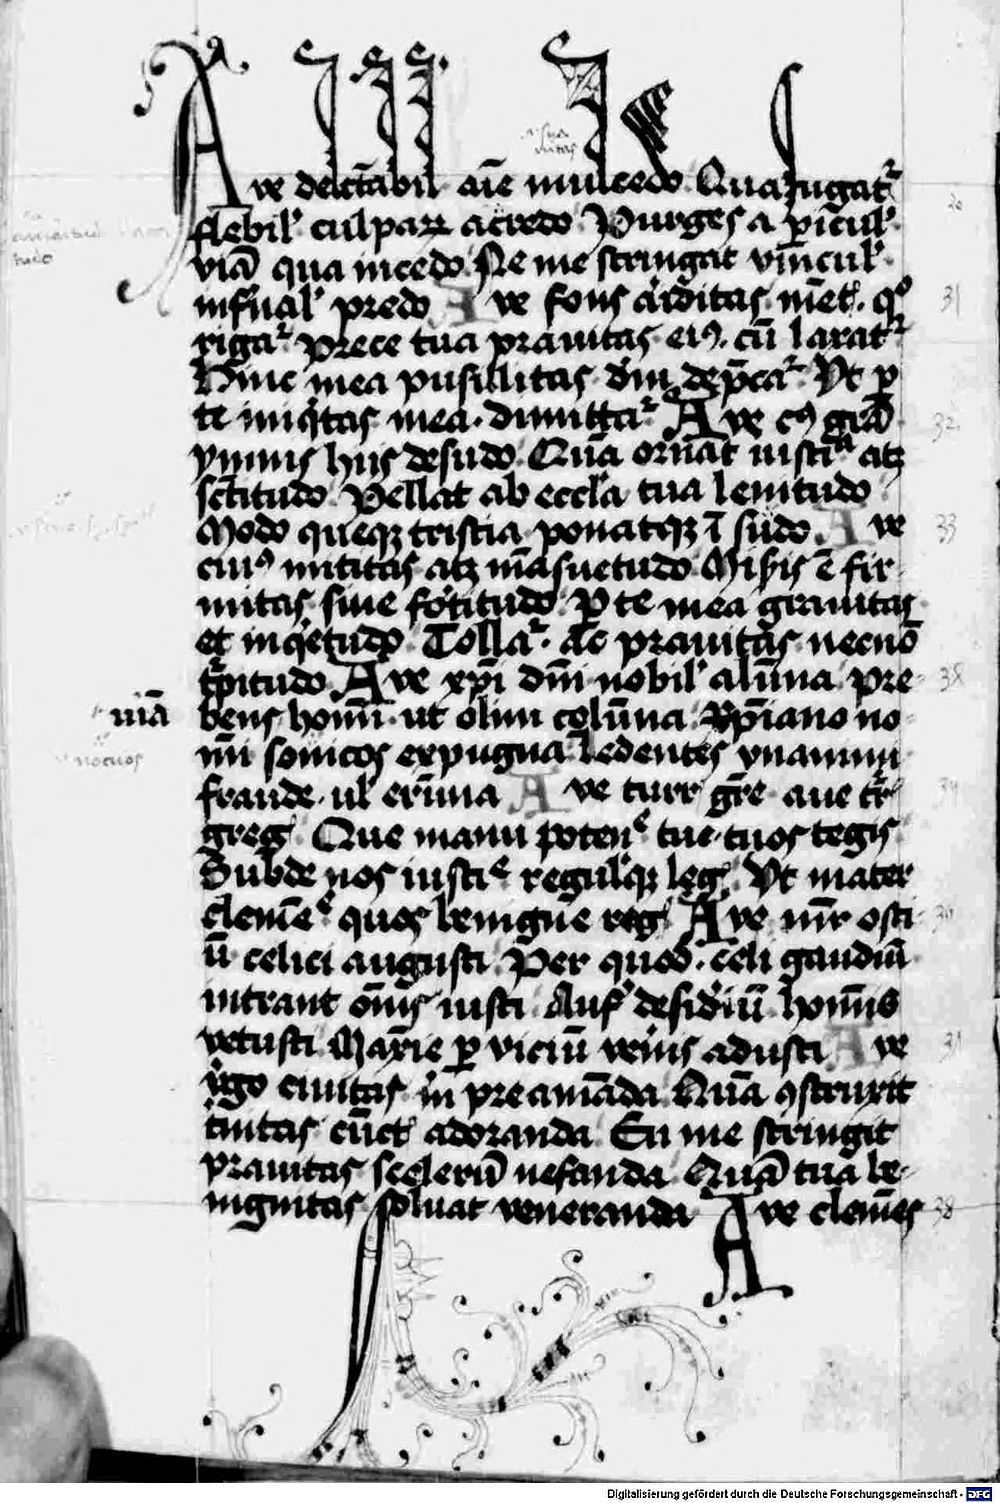 Ave delectabil' aīe mulcedo Qua fugatr
flebil' culpaꝝ acredo Purges a pīcul'
viā qua incedo Ne me stringat vīncul'
infernal' predo Ave fons arditas mēt. qo
rigar prece tua prauitas eiꝰ. cū laxatr
Hinc mea pusillitas dm̄ dep̄car Vt p
te iniqͥtas mea dimittar Ave cꝰ grā
ymnis hijs desudo Quā ornat iusticia atꝫ
sc̄titudo Pellat ab eccl'a tua lenitudo
Modo queqꝫ tristia ponatqꝫ ī sudo Ave
eiuꝰ mititas atꝫ māsuetudo Misis ē fir-
mitas siue fortitudo P te mea grauitas
et inqͥetudo Tollar ac prauitas necnō
t̄pitudo Ave xp̄i dm̄i nobil' alūna pre-
bens homī ut olim colūna Xp̄iano no-
mī sonicos expugna ledentes vnanimi
niā
nociuos
fraude ul' erūna Ave turr' gr̄e aue tr̄
greg' Que manu poten' tue tuos tegis
Subde nos iusti' regul'qꝫ leg' Vt mater
clemē' quos benigne reg' Ave mr̄ osti-
ū celici augusti Per quod celi gaudiū
intrant om̄s iusti Auf' desidiū homīs
vetusti Marie p viciū veriꝰ adusti Ave
v'go ciuitas in preamāda Quā ꝯstruxit
t'nitas cūct' adoranda En me stringit
prauitas scelerū nefanda Quā tua be-
nignitas soluat veneranda Ave clemēs
Digitalisierung gefördert durch die Deutsche Forschungsgemeinschaft - DFG